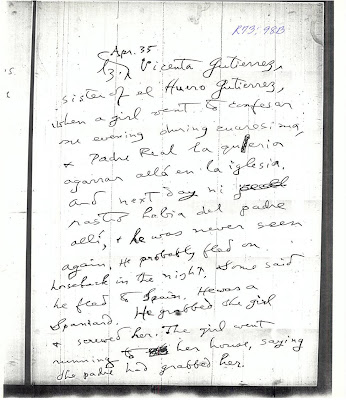 R73: 98B
Apr. 35
Vicenta Gutierrez,
sister of el Huero Gutierrez,
when a girl went to confesar
one evening during cuaresima,
& Padre Real la queria
agarrar allá en la iglesia.
And next day ni
rastro habia del padre
alli, & he was never seen
again. He probably fled on
horseback in the night. Some said
he fled to Spain. He was a
Spaniard. He grabbed the girl
& screwed her. The girl went
running to her house, saying
the padre had grabbed her.